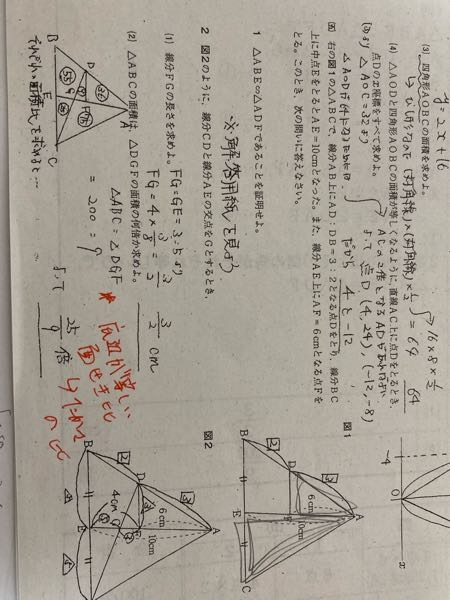 y=2x+16
(3) 四角形AOBCの面積を求めよ。
→16×8×1/2
=64
64
(4) △AODと四角形AOBCの面積が等しくなるように，直線AC上に点Dをとるとき，
点Dのx座標をすべて求めよ。
△AOC=32より
ACの2倍となるADがあればよい
よって 点D (4, 24), (-12, -8)
だから
4と-12
5 右の図1の△ABCで，線分AB上にAD：DB＝3：2となる点Dをとり，線分BC
上に中点EをとるとAE＝10cmとなった。また，線分AE上にAF＝6cmとなる点Fを
とる。このとき，次の問いに答えなさい。
1 △ABE∽△ADFであることを証明せよ。
※解答用紙を見よう
2 図2のように，線分CDと線分AEの交点をGとするとき，
(1) 線分FGの長さを求めよ。
FG:GE=3:5より
FG=4×3/8=3/2
3/2 cm
(2) △ABCの面積は，△DGFの面積の何倍か求めよ。
△ABC:△DGF
=200:9
よって
25/9倍
それぞれの面積比を求めると…
底辺が等しい
面せき比
の比
図1
A
B
C
D
E
F
6cm
10cm
3
2
図2
A
B
D
E
6cm
10cm
4cm
3
2
-4
O
x
A
B
C
D
E